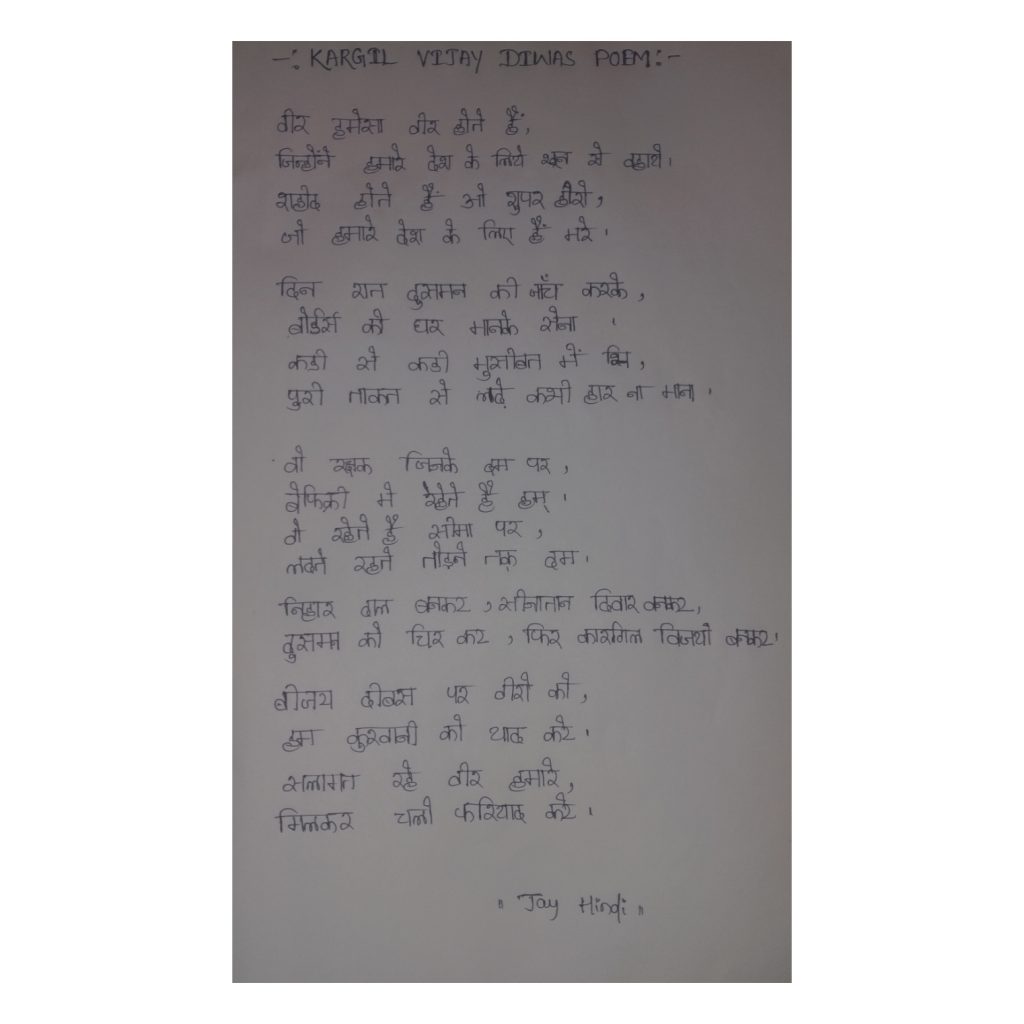 -: KARGIL VIJAY DIWAS POEM:-
वीर हमेसा वीर होते हैं,
जिन्होंने हमारे देश के लिये खून से नहाये।
शहीद होते हैं ओ शुपर हीरो,
जो हमारे देश के लिए हैं मरे।
दिन रात दुसमन की जाँच करके,
बोर्डर्स को घर मानके सेना ।
कडी से कडी मुसीबत में भि,
पुरी ताकत से लढ़े कभी हार ना माना।
वो रक्षक जिनके दम पर,
बेफिक्री मे रेहेते है हम्।
वो रहेते है सीमा पर,
लढते रहते तोड़ने तक़ दम।
निहार ढाल बनकर, सीनातान दिवार बनकर,
दुसमन को चिर कर, फिर कारगिल विजयी बनकर।
वीजय दीबस पर वीरो को,
हम कुरबानी को याद करे।
सलामत रहे वीर हमारे,
मिलकर चलो फरियाद करे।
" Jay Hindi "